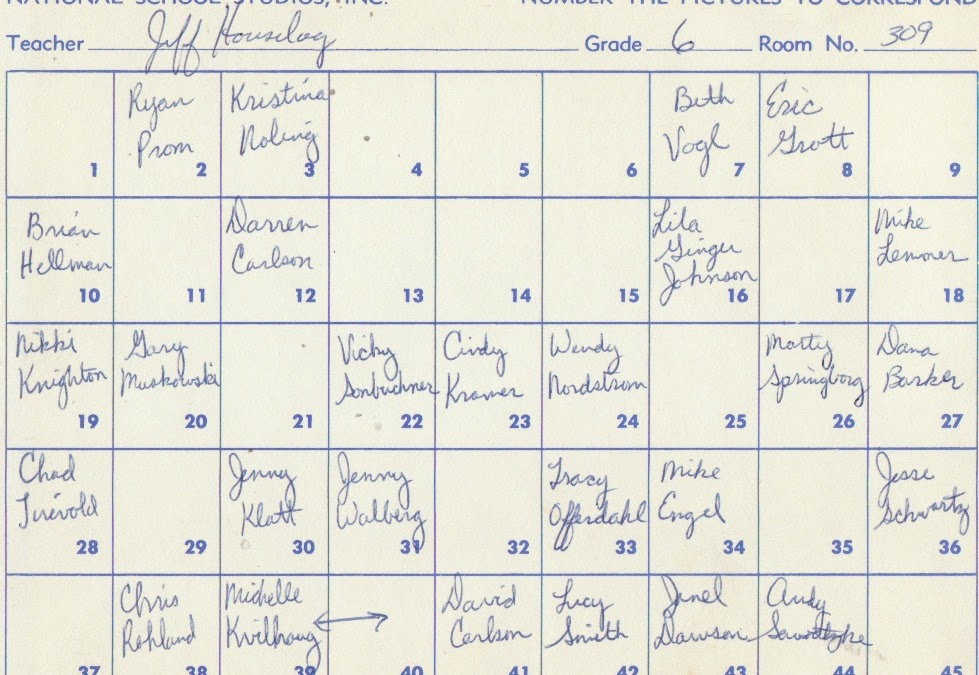 NATIONAL SCHOOL STUDIOS, INC. NUMBER THE PICTURES TO CORRESPOND
Teacher Jeff Houselog Grade 6 Room No. 309
1
Ryan
Prom
2
Kristina
Noling
3
4
5
6
Beth
Vogl
7
Eric
Grott
8
9
Brian
Hellman
10
11
Darren
Carlson
12
13
14
15
Lila
Ginger
Johnson
16
17
Mike
18
Nikki
Knighton
19
Gary
Muskowski
20
21
Vicky
Sonbuchner
22
Cindy
Kramer
23
Wendy
Nordstrom
24
25
Marty
Springborg
26
Dana
Barker
27
Chad
28
29
Jenny
Klatt
30
Jenny
Walberg
31
32
Tracy
Offerdahl
33
Mike
Engel
34
35
Jesse
Schwartz
36
37
Chris
Rohland
38
Michelle
Kvilhaug
39
40
David
Carlson
41
Lucy
Smith
42
Janel
Dawson
43
Andy
44
45